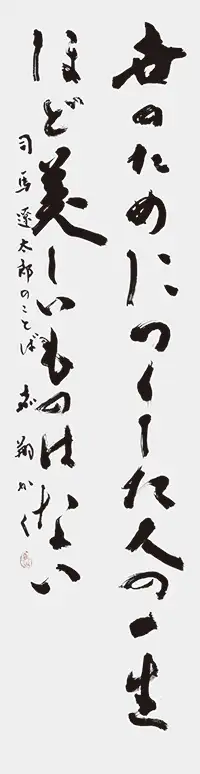 世のためにつくした人の一生
ほど美しいものはない
司馬遼太郎のことば 翔かく